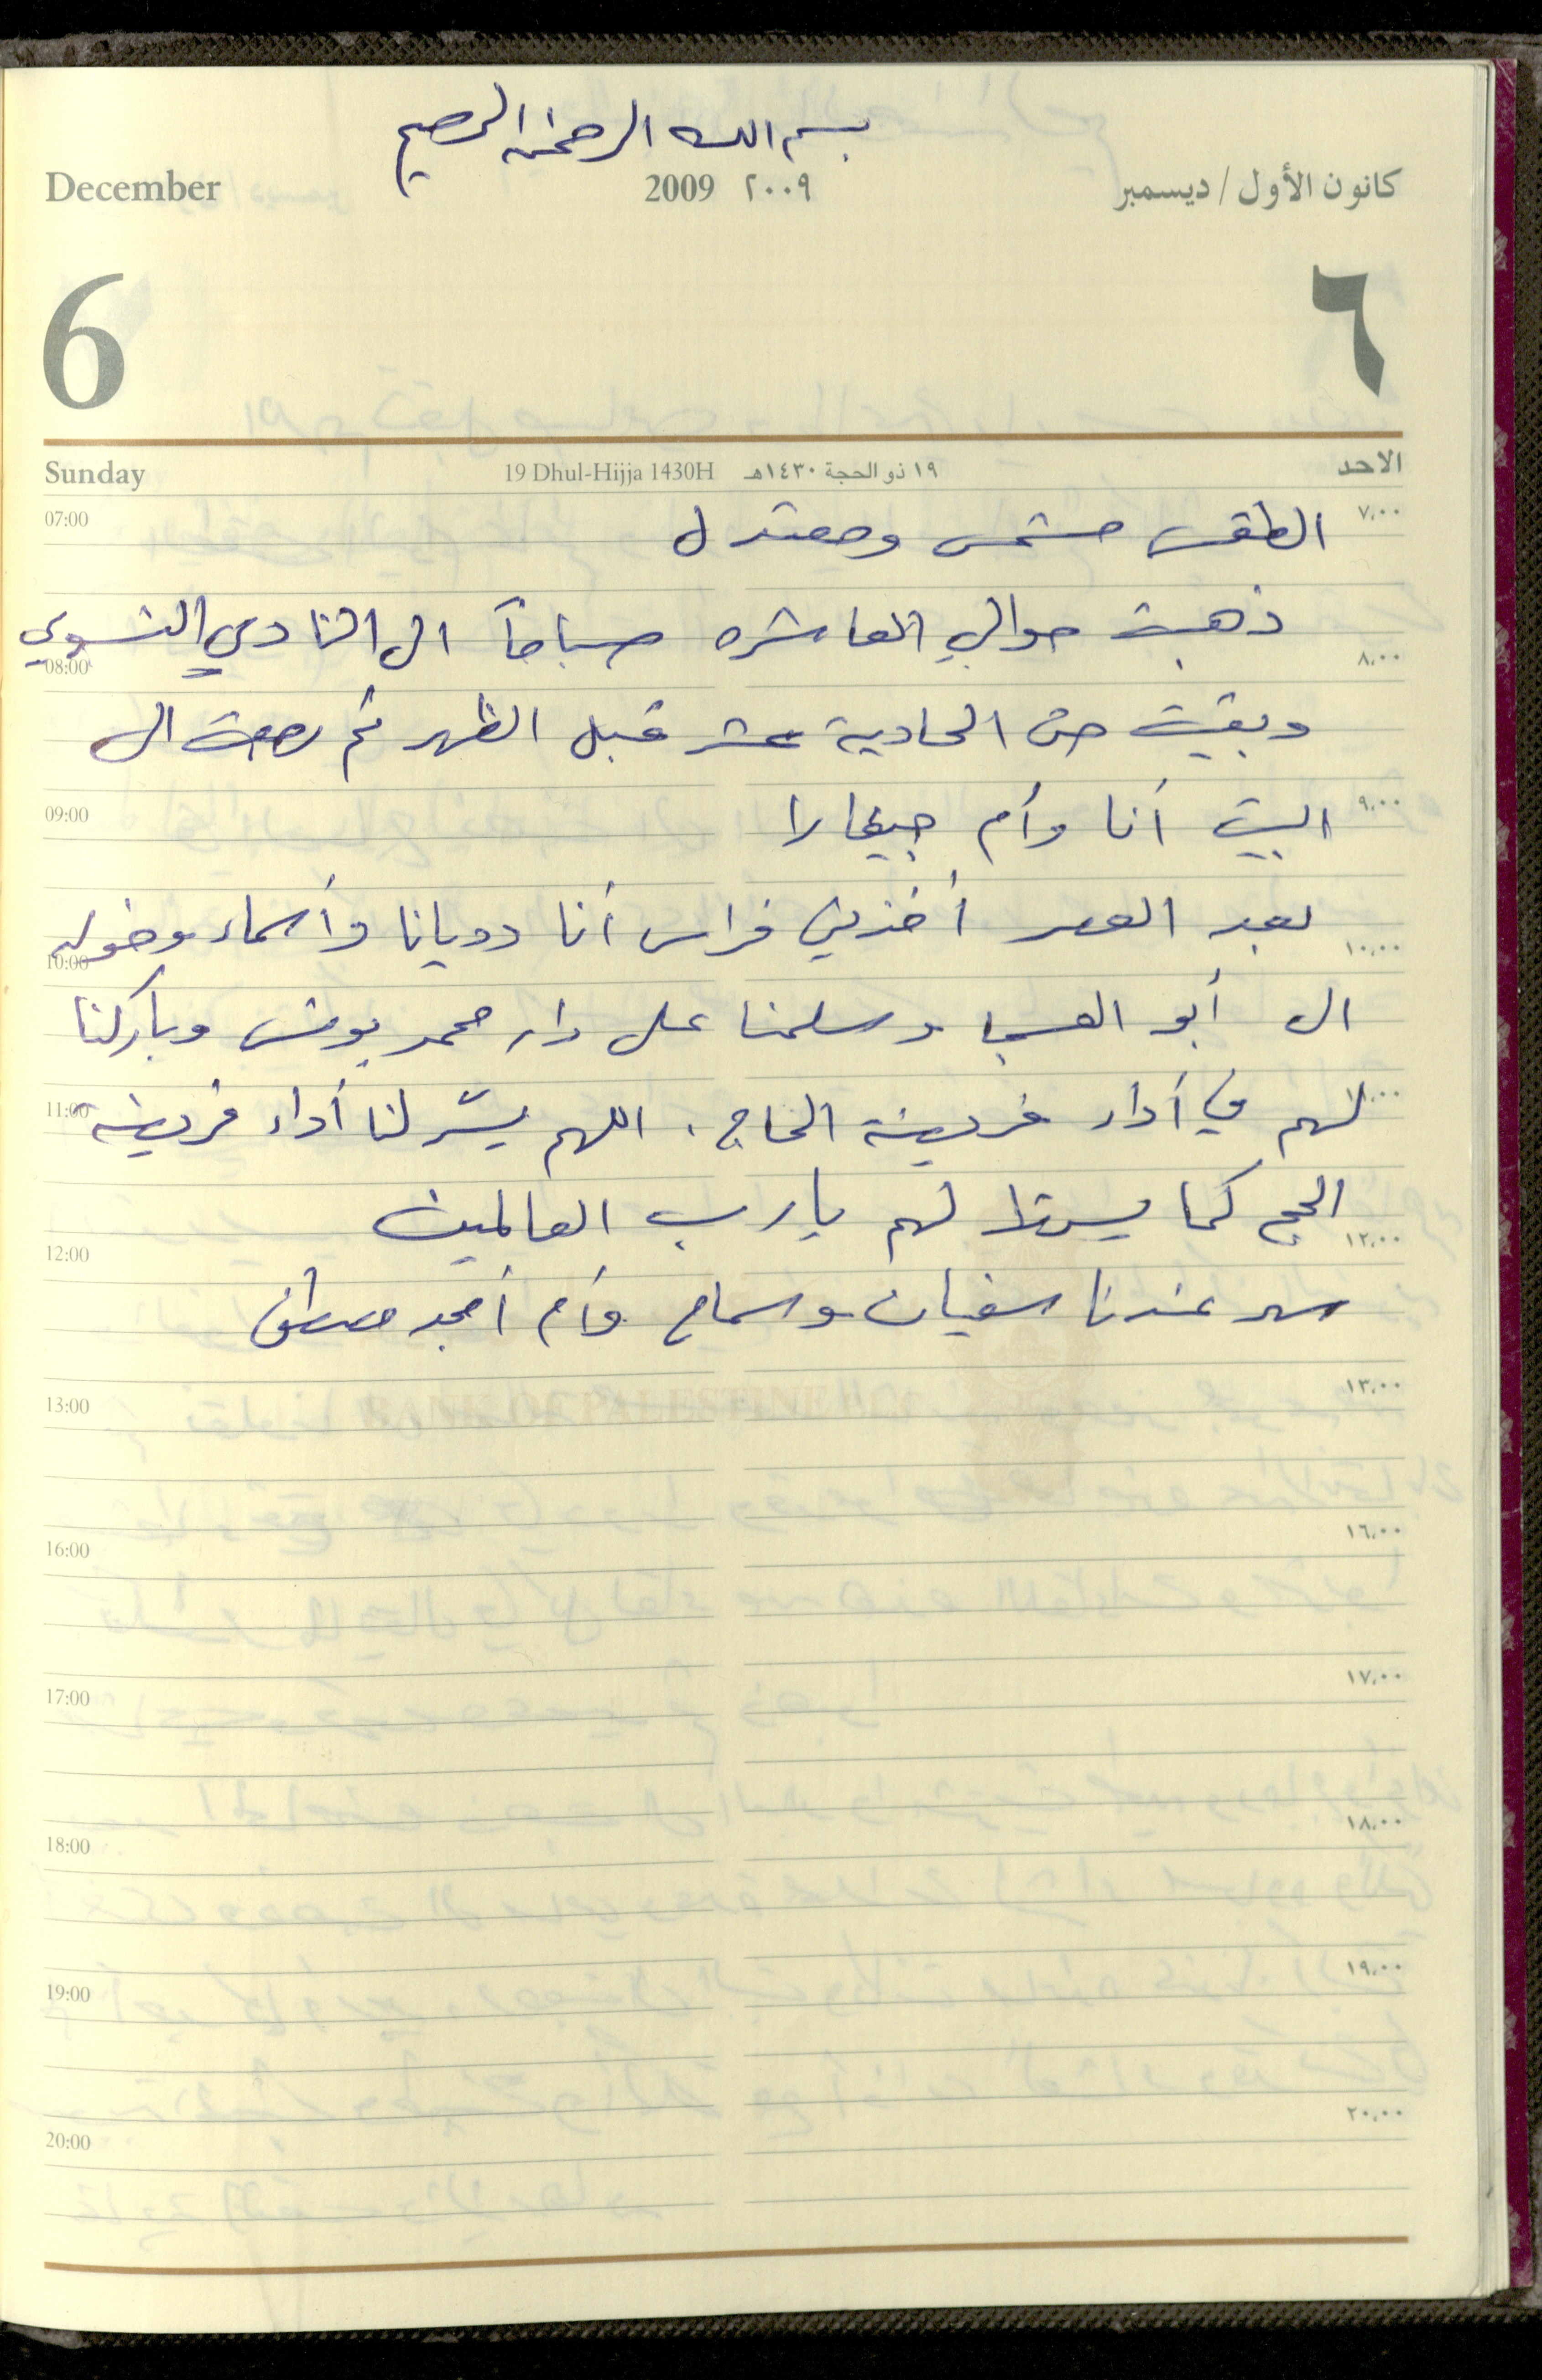 بسم الله الرحمن الرحيم
December 2009 ٢٠٠٩ كانون الأول / ديسمبر
6 ٦
Sunday 19 Dhul-Hijja 1430H ١٩ ذو الحجة ١٤٣٠هـ الاحد
07:00 الطقس مشمس ومعتدل ٧,٠٠
ذهبت حوالي العاشره صباحاً الى النادي النسوي
08:00 ٨,٠٠
وبقيت حتى الحادية عشر قبل الظهر ثم رجعت الى
09:00 البيت أنا وأم جيفارا ٩,٠٠
بعد العصر أخذني فراس أنا وديانا وأسماء وخوله
10:00 ١٠,٠٠
الى أبو العسجا وسلمنا على دار محمد يونس وباركنا
11:00 لهم في أداء فريضة الحاج . اللهم يسّر لنا أداء فريضة
الحج كما يسرتها لهم يا رب العالمين
12:00 ١٢,٠٠
سهر عندنا سفيان وسماح وأم أمجد مصطفى
13:00 ١٣,٠٠
BANK OF PALESTINE
16:00 ١٦,٠٠
17:00 ١٧,٠٠
18:00 ١٨,٠٠
19:00 ١٩,٠٠
20:00 ٢٠,٠٠